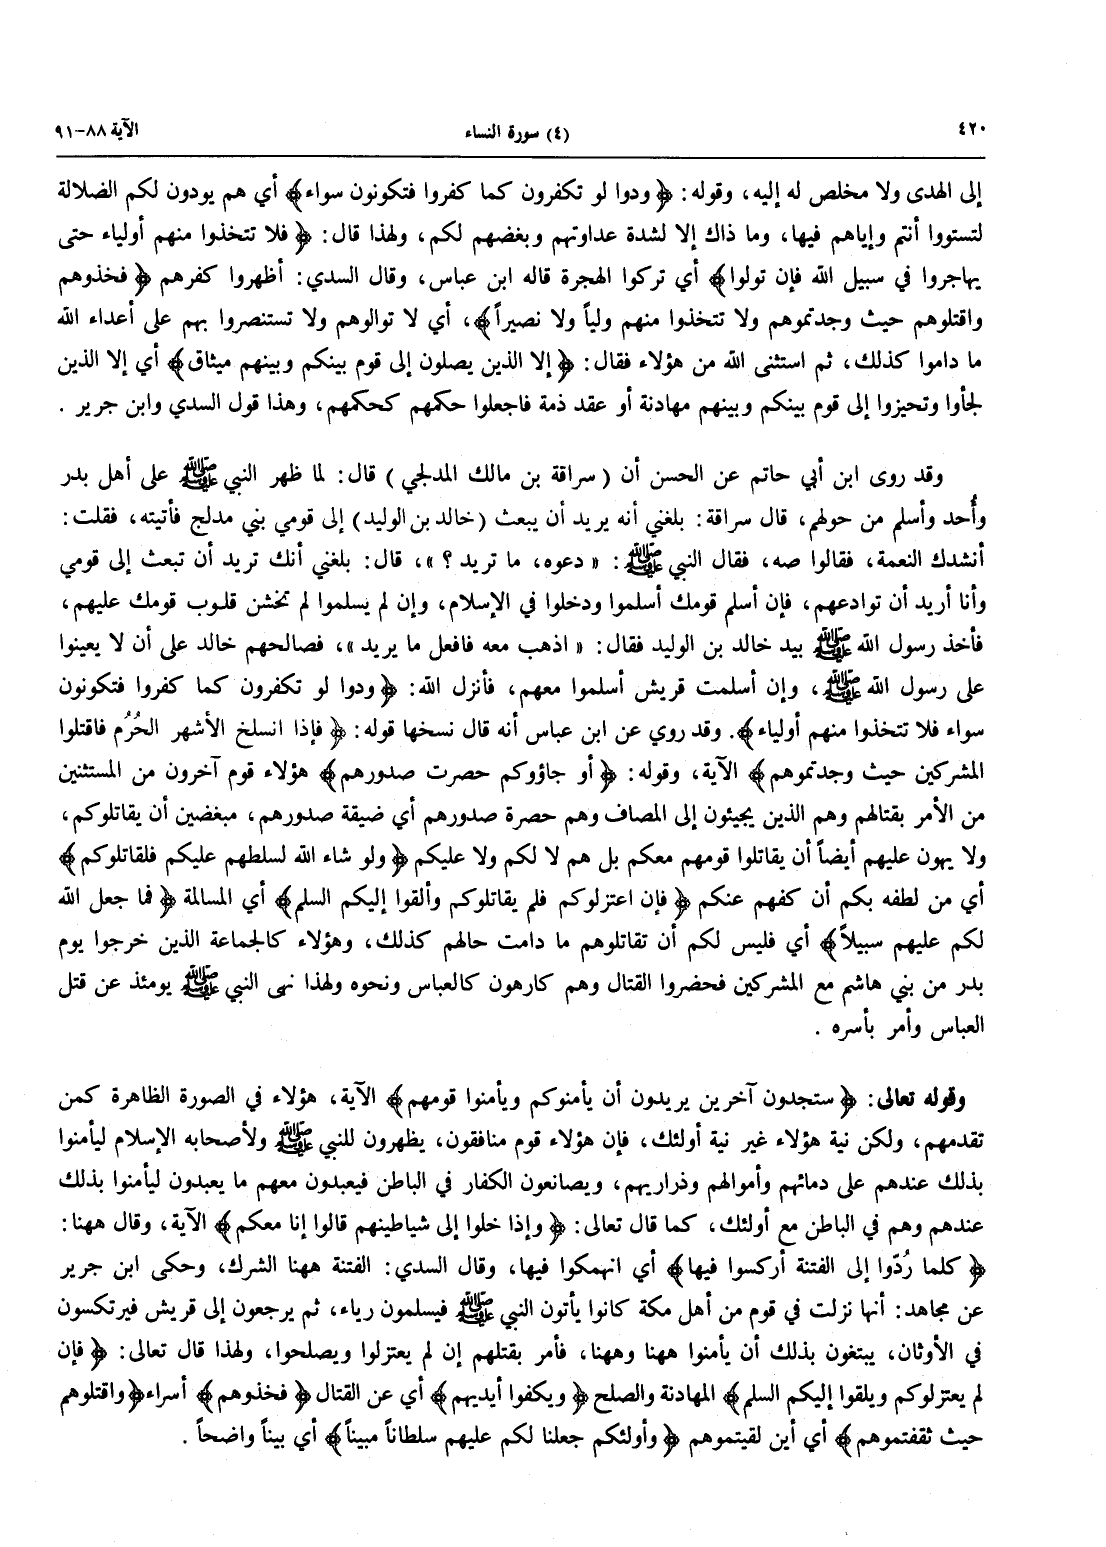 ٤٢٠ (٤) سورة النساء الآية ٨٨-٩١
إلى الهدى ولا مخلص له إليه، وقوله: ﴿ودوا لو تكفرون كما كفروا فتكونون سواء﴾ أي هم يودون لكم الضلالة
لتستووا أنتم وإياهم فيها، وما ذاك إلا لشدة عداوتهم وبغضهم لكم، ولهذا قال: ﴿فلا تتخذوا منهم أولياء حتى
يهاجروا في سبيل الله فإن تولوا﴾ أي تركوا الهجرة قاله ابن عباس، وقال السدي: أظهروا كفرهم ﴿فخذوهم
واقتلوهم حيث وجدتموهم ولا تتخذوا منهم ولياً ولا نصيراً﴾، أي لا توالوهم ولا تستنصروا بهم على أعداء الله
ما داموا كذلك، ثم استثنى الله من هؤلاء فقال: ﴿إلا الذين يصلون إلى قوم بينكم وبينهم ميثاق﴾ أي إلا الذين
لجأوا وتحيزوا إلى قوم بينكم وبينهم مهادنة أو عقد ذمة فاجعلوا حكمهم كحكمهم، وهذا قول السدي وابن جرير .
وقد روى ابن أبي حاتم عن الحسن أن (سراقة بن مالك المدلجي) قال: لما ظهر النبي ﷺ على أهل بدر
وأُحد وأسلم من حولهم، قال سراقة: بلغني أنه يريد أن يبعث (خالد بن الوليد) إلى قومي بني مدلج فأتيته، فقلت:
أنشدك النعمة، فقالوا صه، فقال النبي ﷺ: «دعوه، ما تريد؟»، قال: بلغني أنك تريد أن تبعث إلى قومي
وأنا أريد أن توادعهم، فإن أسلم قومك أسلموا ودخلوا في الإسلام، وإن لم يسلموا لم تخشن قلوب قومك عليهم،
فأخذ رسول الله ﷺ بيد خالد بن الوليد فقال: «اذهب معه فافعل ما يريد»، فصالحهم خالد على أن لا يعينوا
على رسول الله ﷺ، وإن أسلمت قريش أسلموا معهم، فأنزل الله: ﴿ودوا لو تكفرون كما كفروا فتكونون
سواء فلا تتخذوا منهم أولياء﴾. وقد روي عن ابن عباس أنه قال نسخها قوله: ﴿فإذا انسلخ الأشهر الحُرُم فاقتلوا
المشركين حيث وجدتموهم﴾ الآية، وقوله: ﴿أو جاؤوكم حصرت صدورهم﴾ هؤلاء قوم آخرون من المستثنين
من الأمر بقتالهم وهم الذين يجيئون إلى المصاف وهم حصرة صدورهم أي ضيقة صدورهم، مبغضين أن يقاتلوكم،
ولا يهون عليهم أيضاً أن يقاتلوا قومهم معكم بل هم لا لكم ولا عليكم ﴿ولو شاء الله لسلطهم عليكم فلقاتلوكم﴾
أي من لطفه بكم أن كفهم عنكم ﴿فإن اعتزلوكم فلم يقاتلوكم وألقوا إليكم السلم﴾ أي المسالمة ﴿فما جعل الله
لكم عليهم سبيلاً﴾ أي فليس لكم أن تقاتلوهم ما دامت حالهم كذلك، وهؤلاء كالجماعة الذين خرجوا يوم
بدر من بني هاشم مع المشركين فحضروا القتال وهم كارهون كالعباس ونحوه ولهذا نهى النبي ﷺ يومئذ عن قتل
العباس وأمر بأسره .
وقوله تعالى: ﴿ستجدون آخرين يريدون أن يأمنوكم ويأمنوا قومهم﴾ الآية، هؤلاء في الصورة الظاهرة كمن
تقدمهم، ولكن نية هؤلاء غير نية أولئك، فإن هؤلاء قوم منافقون، يظهرون للنبي ﷺ ولأصحابه الإسلام ليأمنوا
بذلك عندهم على دمائهم وأموالهم وذراريهم، ويصانعون الكفار في الباطن فيعبدون معهم ما يعبدون ليأمنوا بذلك
عندهم وهم في الباطن مع أولئك، كما قال تعالى: ﴿وإذا خلوا إلى شياطينهم قالوا إنا معكم﴾ الآية، وقال ههنا:
﴿كلما رُدّوا إلى الفتنة أركسوا فيها﴾ أي انهمكوا فيها، وقال السدي: الفتنة ههنا الشرك، وحكى ابن جرير
عن مجاهد: أنها نزلت في قوم من أهل مكة كانوا يأتون النبي ﷺ فيسلمون رياء، ثم يرجعون إلى قريش فيرتكسون
في الأوثان، يبتغون بذلك أن يأمنوا ههنا وههنا، فأمر بقتلهم إن لم يعتزلوا ويصلحوا، ولهذا قال تعالى: ﴿فإن
لم يعتزلوكم ويلقوا إليكم السلم﴾ المهادنة والصلح ﴿ويكفوا أيديهم﴾ أي عن القتال ﴿فخذوهم﴾ أسراء ﴿واقتلوهم
حيث ثقفتموهم﴾ أي أين لقيتموهم ﴿وأولئكم جعلنا لكم عليهم سلطاناً مبيناً﴾ أي بيناً واضحاً .